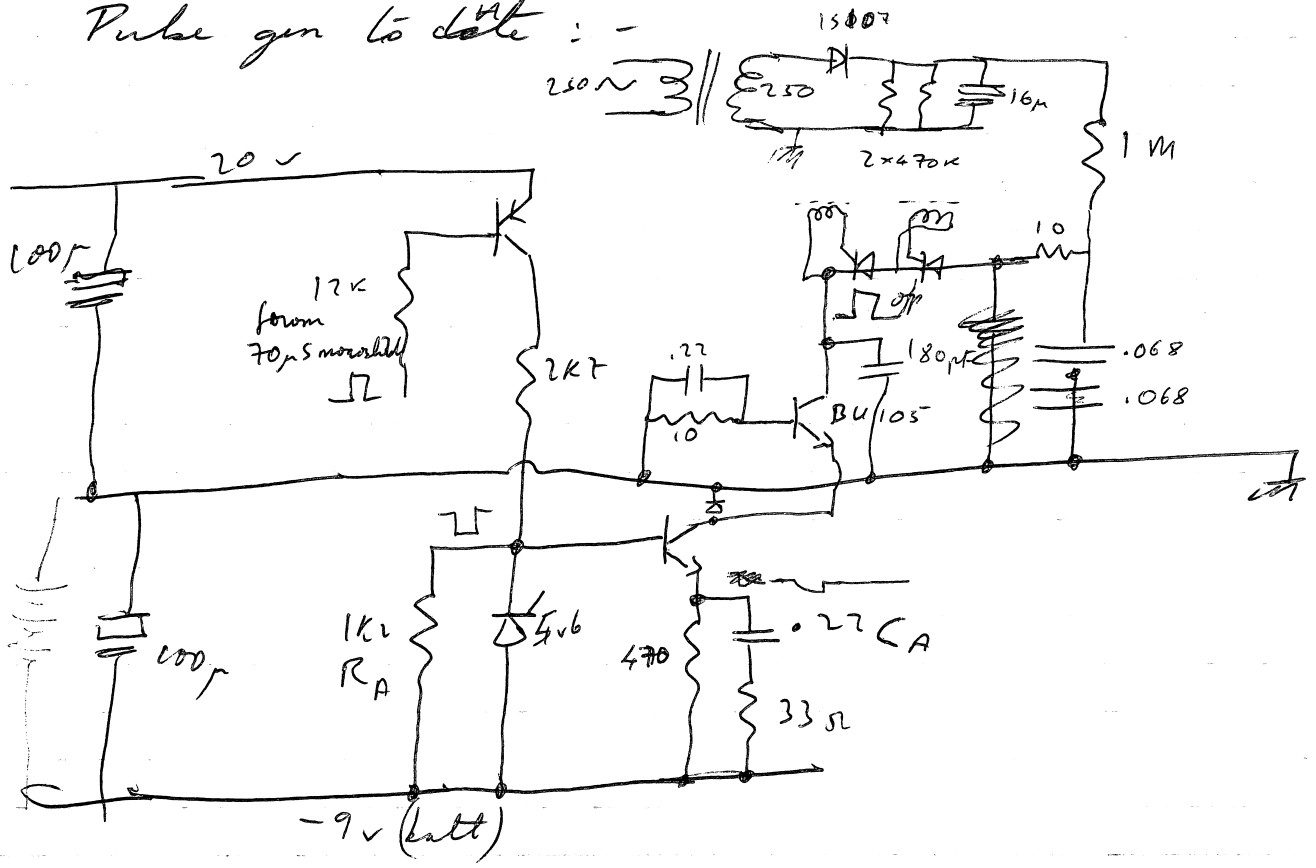 Pulse gen to date : -
1S007
250~
250
16μ
2×470K
1 M
20 v
100μ
12K
from
70μS monostable
2K7
.22
10
BU105
180pF
o/p
10
.068
.068
1K2
R_A
5v6
470
.22 C_A
33 Ω
100μ
-9 v (batt)